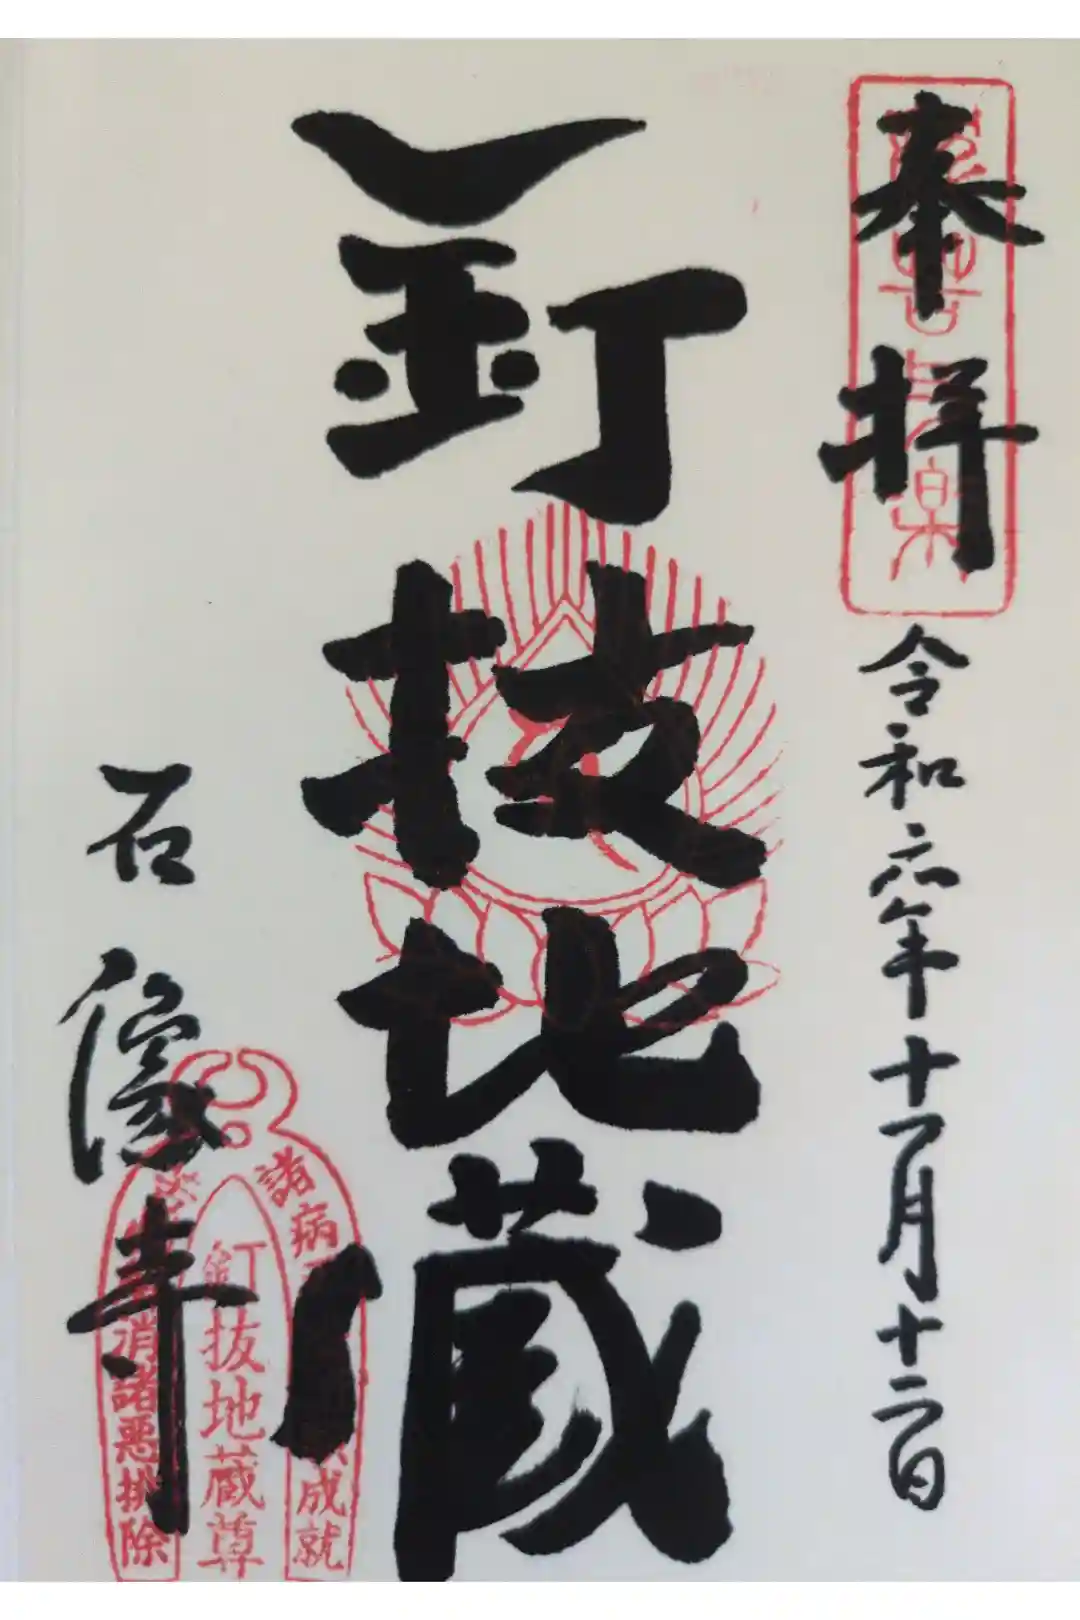 奉拝
令和六年十一月十二日
釘抜地蔵
石像寺
諸病
成就
釘抜地蔵尊
消諸悪排除